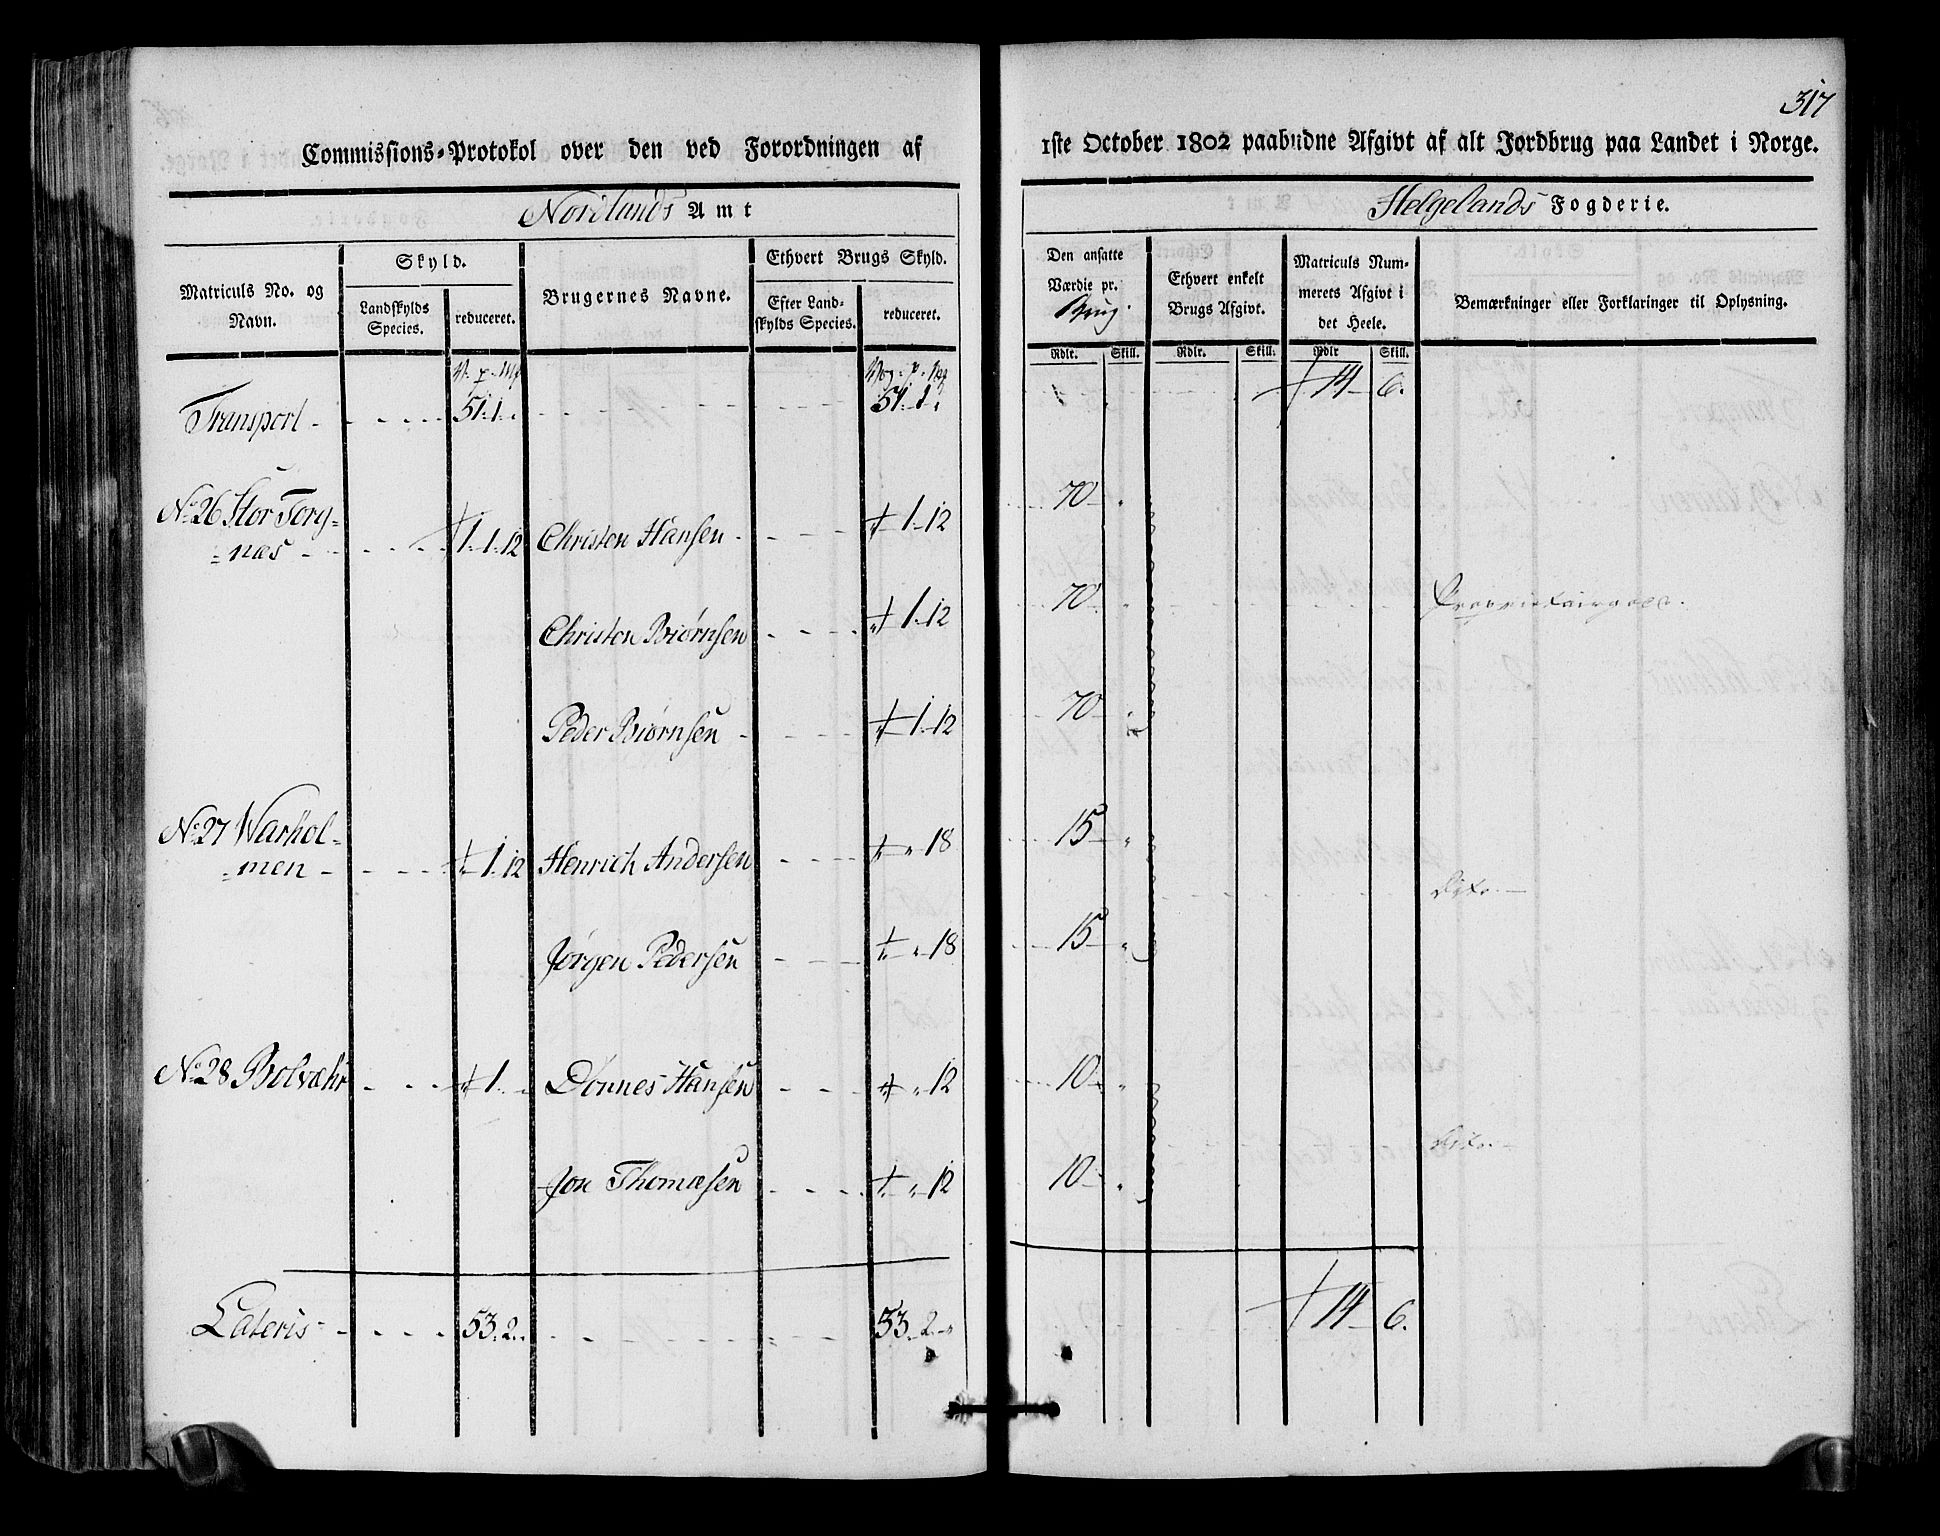 317
Commissions-Protokol over den ved Forordningen af 1ste October 1802 paabudne Afgivt af alt Jordbrug paa Landet i Norge.
Nordlands Amt
Helgelands Fogderie.
Matriculs No. og Navn.
Skyld.
Landskylds Species.
reduceret.
Brugernes Navne.
Ethvert Brugs Skyld.
Efter Landskylds Species.
reduceret.
Den ansatte Værdie pr. Brug.
Ethvert enkelt Brugs Afgivt.
Matriculs Nummerets Afgivt i det Heele.
Bemærkninger eller Forklaringer til Oplysning.
Rdlr. Skill. Rdlr. Skill. Rdlr Skill.
Transport 51.1. 51.1. 14 6.
No 26 Stor Torg-
næs 1.1.12 Christen Hansen 1.12 70
Christen Biørnsen 1.12 70 Proprietairgods.
Peder Biørnsen 1.12 70
No 27 Warhol-
men 1.12 Henrich Andersen 18 15
Dito.
Jørgen Pedersen 18 15
No 28 Bolvær 1. Dønnes Hansen 12 10
Dito.
Jon Thomæsen 12 10
Lateris 53.2. 53.2. 14 6.